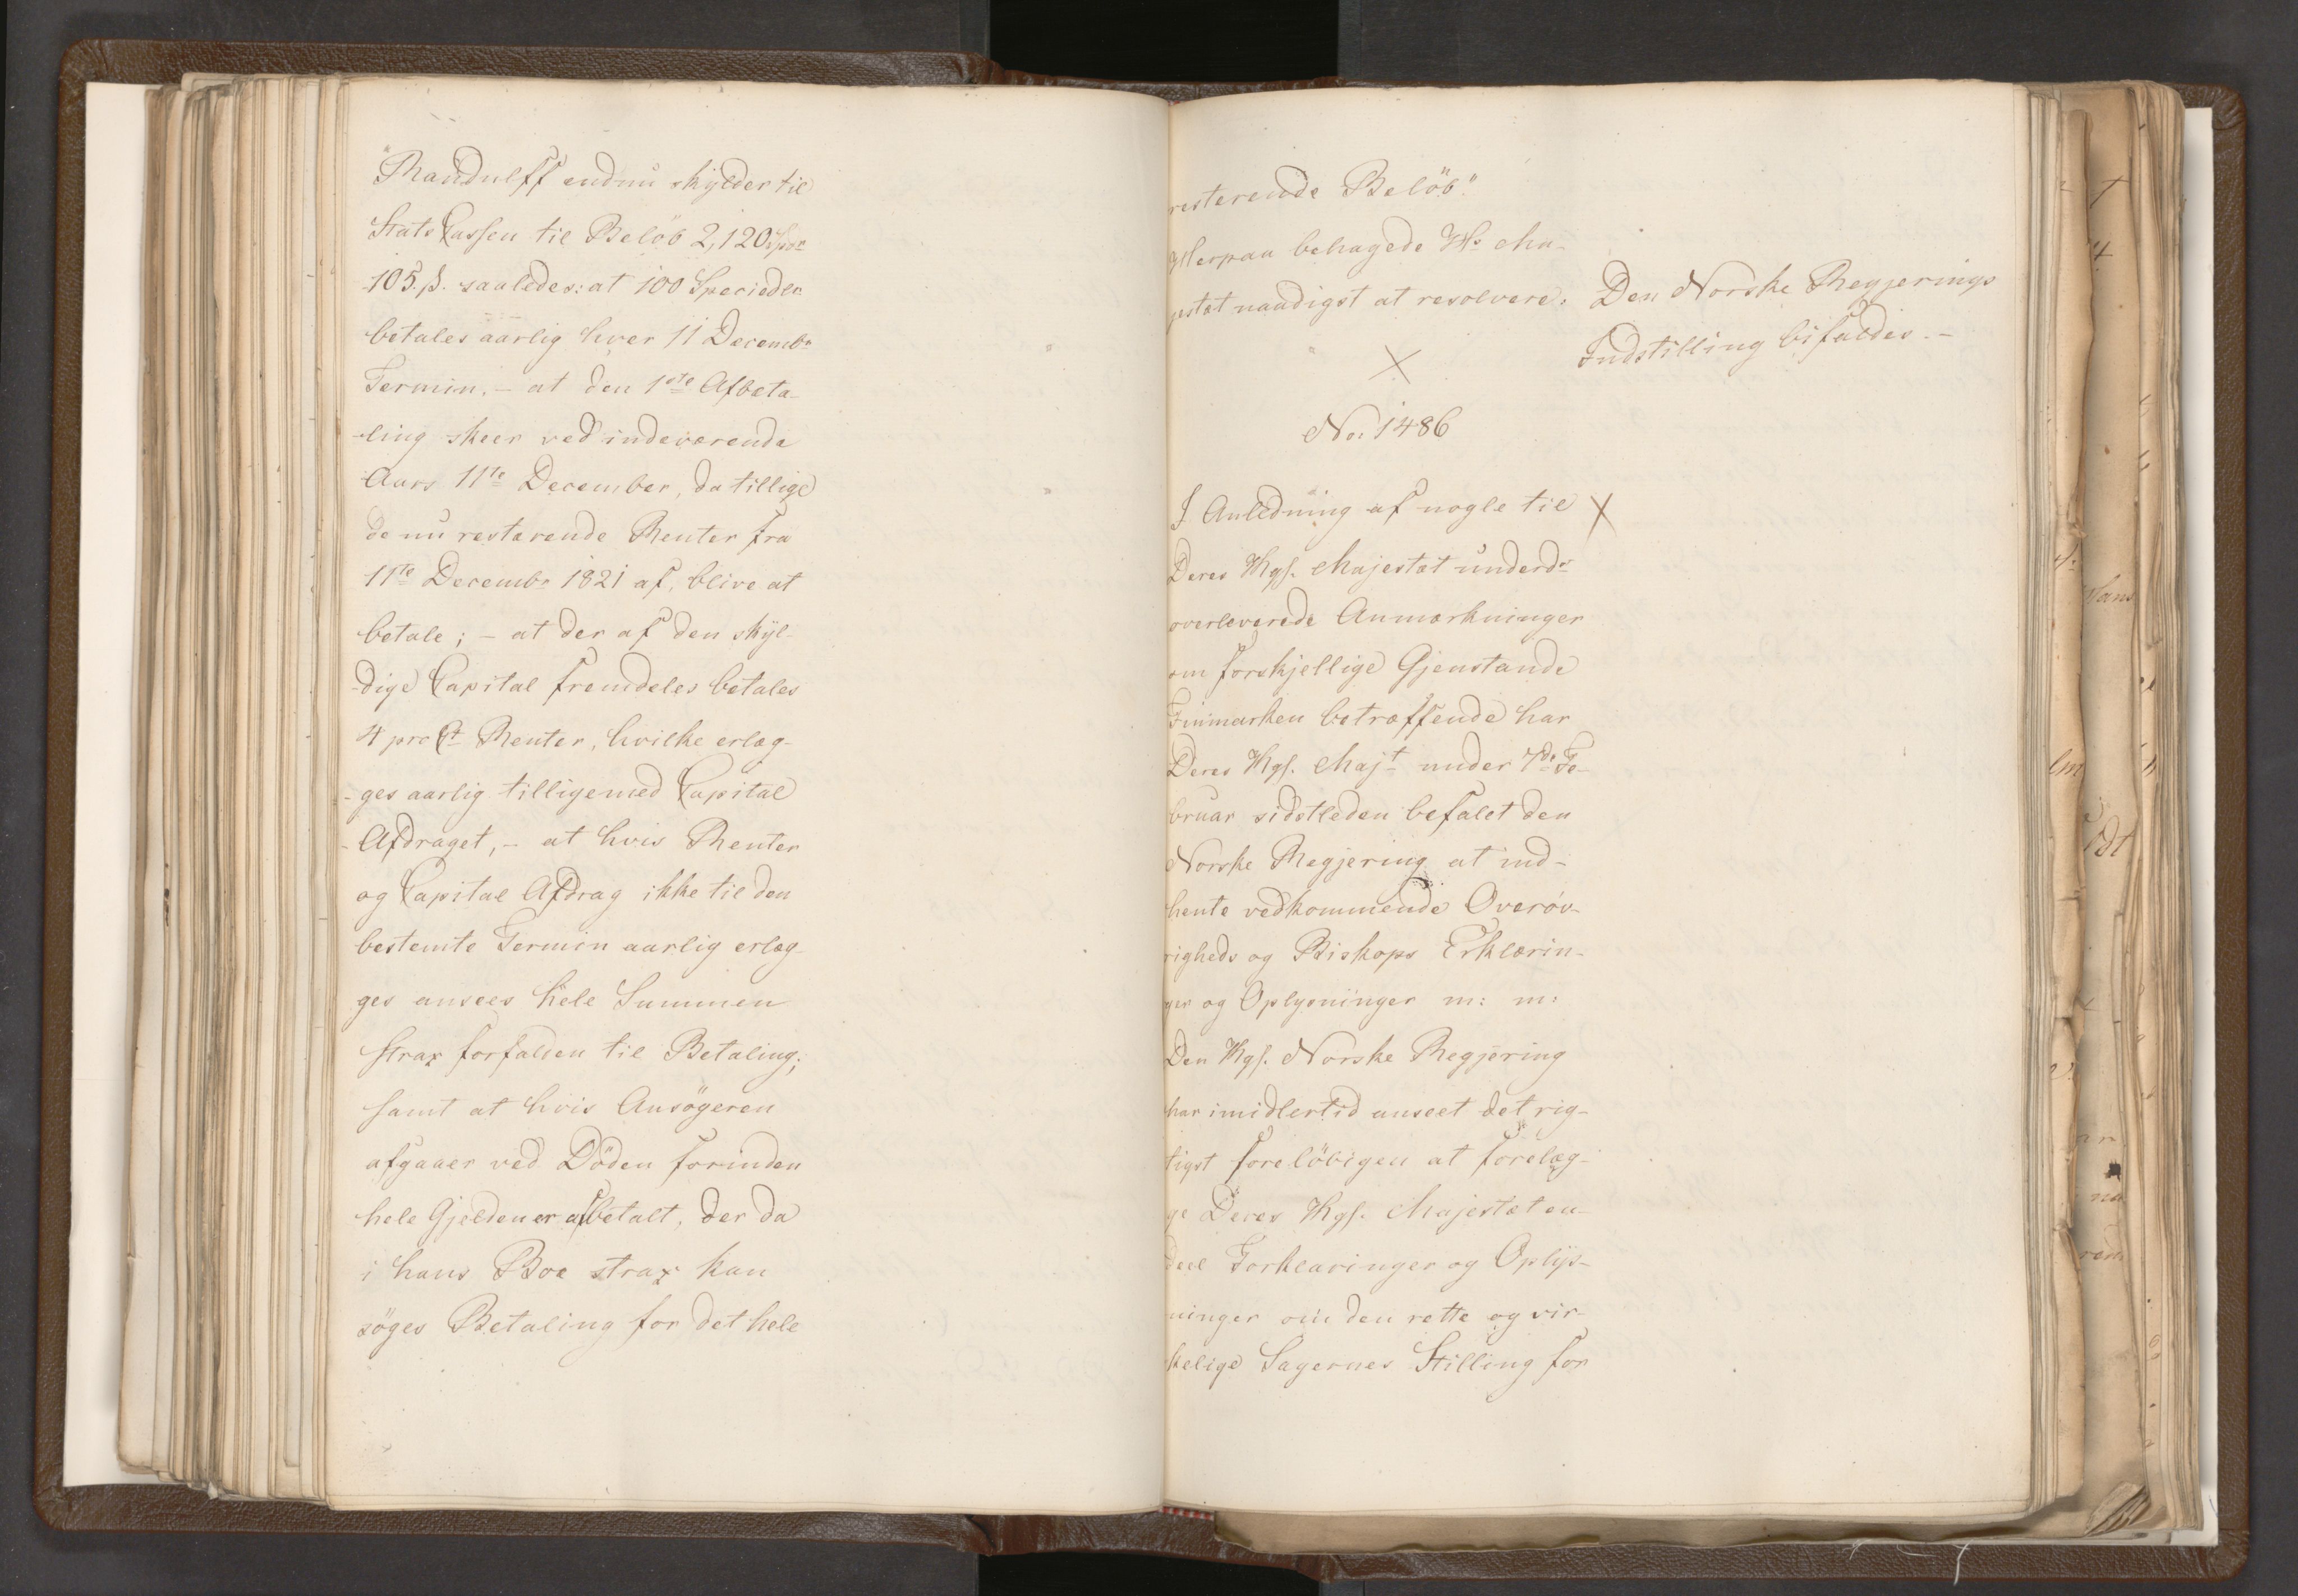 Randulff endnu skylder til
Stats Cassen til Beløb 2,120 Spdr
105 ß. saaledes: at 100 Speciedlr
betales aarlig hver 11 Decembr
Termin. – at den 1ste Afbeta-
-ling skeer ved indeværende
Aars 11te December, da tillige
de nu resterende Renter fra
11te Decembr 1821 af, blive at
betale; – at der af den skyl-
-dige Capital fremdeles betales
4 pro Ct Renter, hvilke erlæg-
-ges aarlig tilligemed Capital
-Afdraget, – at hvis Renter
og Capital Afdrag ikke til den
bestemte Termin aarlig erlæg-
ges ansees hele Summen
strax forfalden til Betaling;
samt at hvis Ansøgeren
afgaaer ved Døden forinden
hele Gjelden er afbetalt, der da
i hans Boe strax kan
søges Betaling for det hele
resterende Beløb."
Herpaa behagede Hs Ma-
jestæt naadigst at resolvere:
Den Norske Regjerings
Indstilling bifaldes. –
No. 1486
I Anledning af nogle til
Deres Kgs. Majestæt underdr
overleverede Anmærkninger
om forskjellige Gjenstande
Finmarken betræffende har
Deres Kgs. Majt under 7de Fe-
bruar sidstleden befalet den
Norske Regjering at ind-
hente vedkommende Overøv-
righeds og Biskops Erklærin-
ger og Oplysninger m: m:
Den Kgs. Norske Regjering
har imidlertid anseet det rig-
tigst foreløbigen at forelæg-
ge Deres Kgs. Majestæt en
deel Forklaringer og Oplys-
ninger om den rette og vir-
kelige Sagernes Stilling for